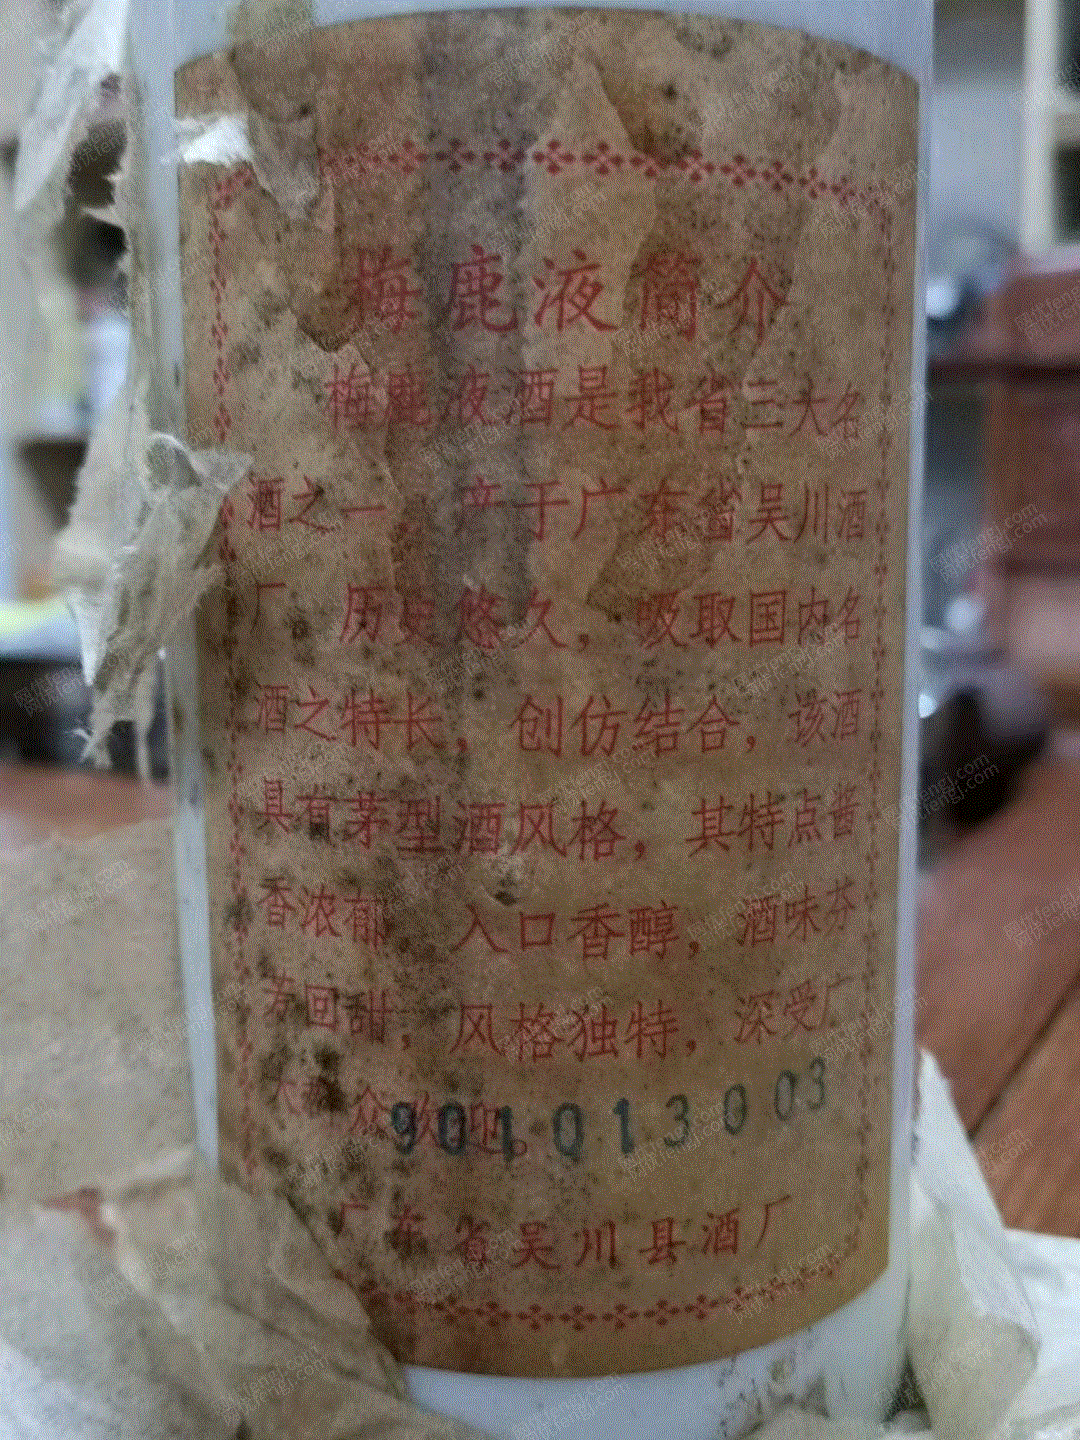 梅鹿液简介
梅鹿液酒是我省三大名
酒之一 产于广东省吴川酒
厂。历史悠久，吸取国内名
酒之特长，创仿结合，该酒
具有茅型酒风格，其特点酱
香浓郁，入口香醇，酒味芬
芳回甜，风格独特，深受广
大群众欢迎。
901013003
广东省吴川县酒厂